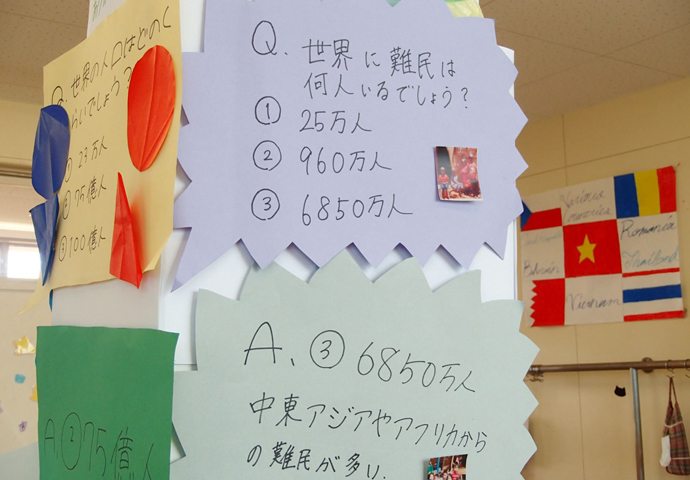 Q. 世界の人口はどのく
らいでしょう?
23万人
② 75億人
③ 100億人
A. ② 75億人
Q. 世界に難民は
何人いるでしょう?
① 25万人
② 960万人
③ 6850万人
A. ③ 6850万人
中東アジアやアフリカから
の難民が多い.
Various
Countries
Romania
Bahrain
Thailand
Vietnam